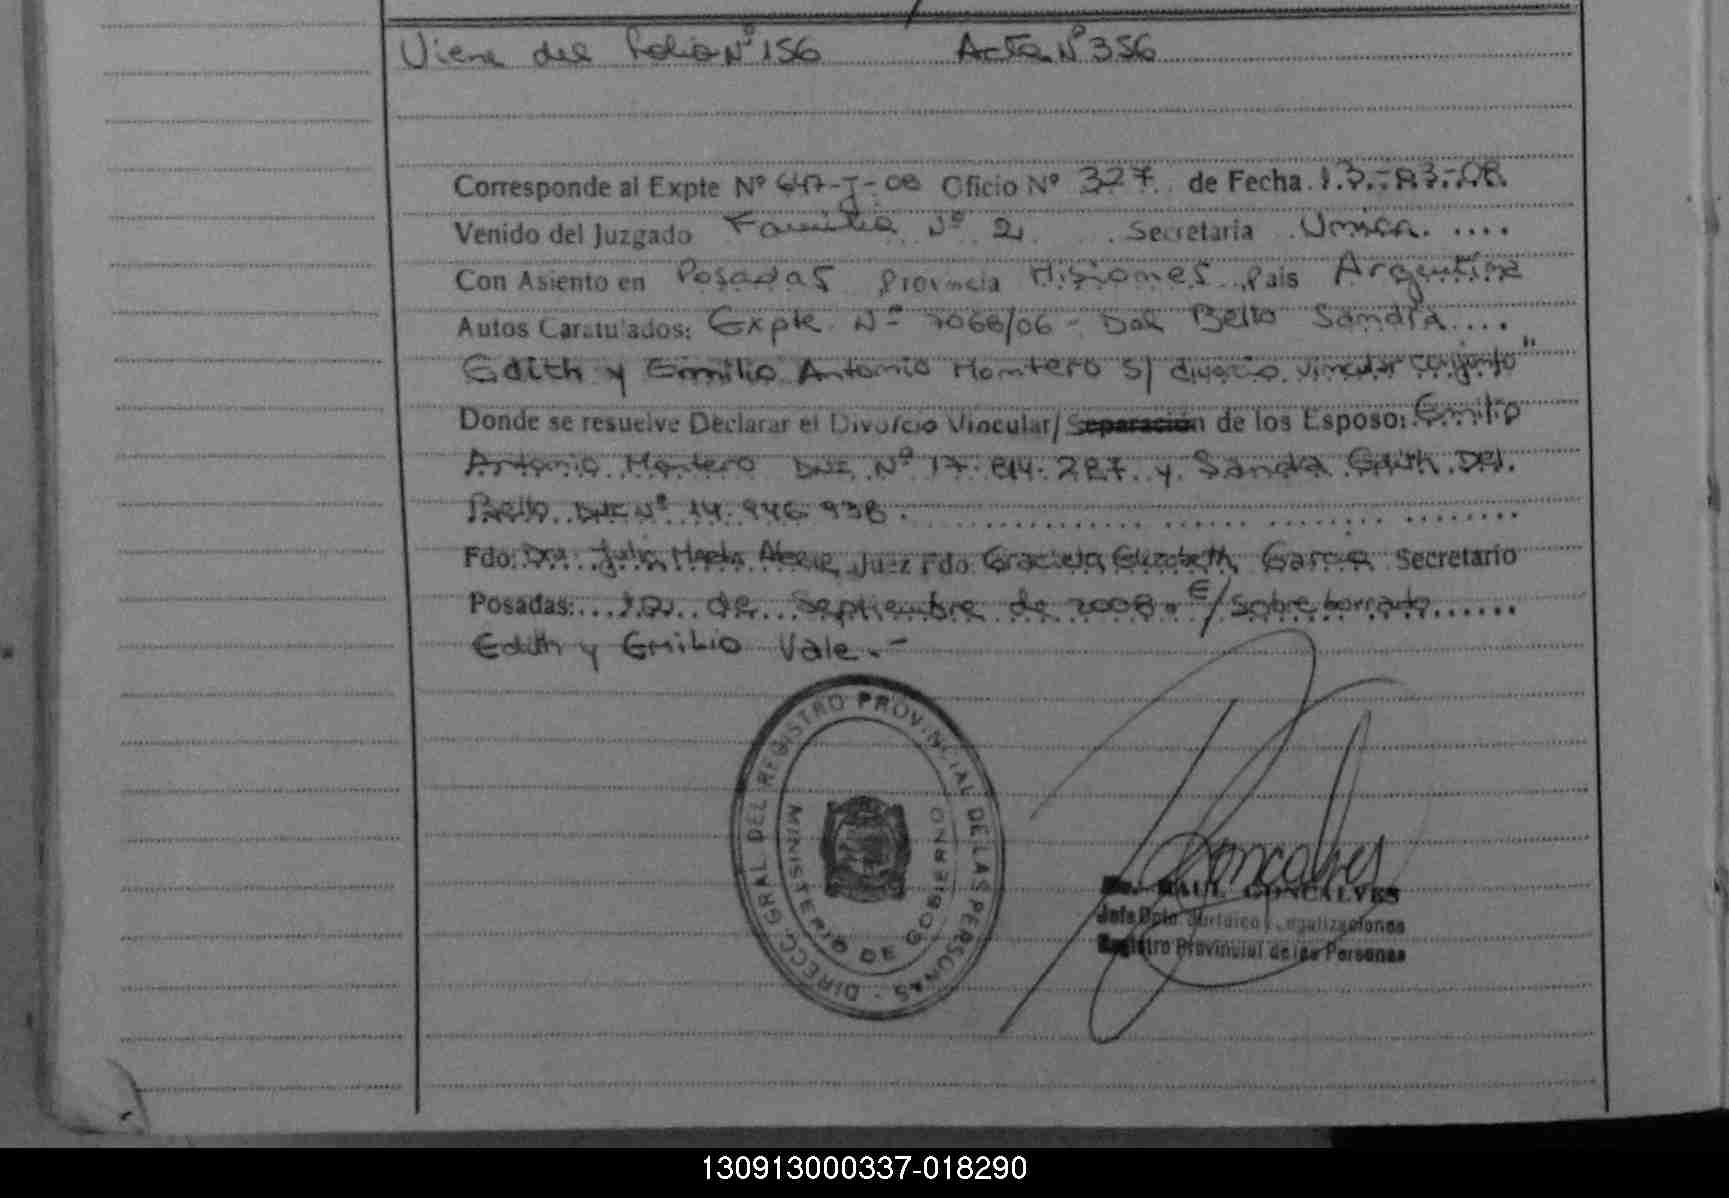 Viene del folio Nº 156 Acta Nº 356
Corresponde al Expte Nº 647-J-08 Oficio Nº 327 de Fecha 13-03-08
Venido del Juzgado Familia Nº 2 Secretaria Unica
Con Asiento en Posadas Provincia Misiones Pais Argentina
Autos Caratulados: Expte Nº 1068/06 - Dal Bello Sandra
Edith y Emilio Antonio Montero s/ divorcio vincular conjunto"
Donde se resuelve Declarar el Divorcio Vincular/Separación de los Esposo: Emilio
Antonio Montero DNI Nº 17.814.287 y Sandra Edith Dal
Bello DNI Nº 14.946.938.
Fdo: Dra. Julia Juez Fdo Graciela Elizabeth Garcia Secretario
Posadas: de Septiembre de 2008. E/ sobre borrado
Edith y Emilio Vale.-
DIRECC. GRAL DEL REGISTRO PROVINCIAL DE LAS PERSONAS -
MINISTERIO DE GOBIERNO
Goncalves
Dr. RAUL GONCALVES
Jefe Dpto Juridico y Legalizaciones
Registro Provincial de las Personas
130913000337-018290